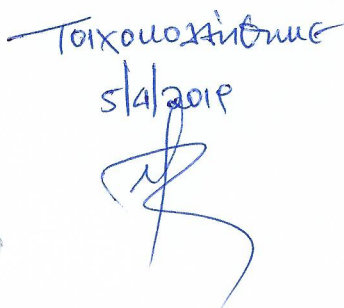 Τοιχοκολλήθηκε
5/4/2019